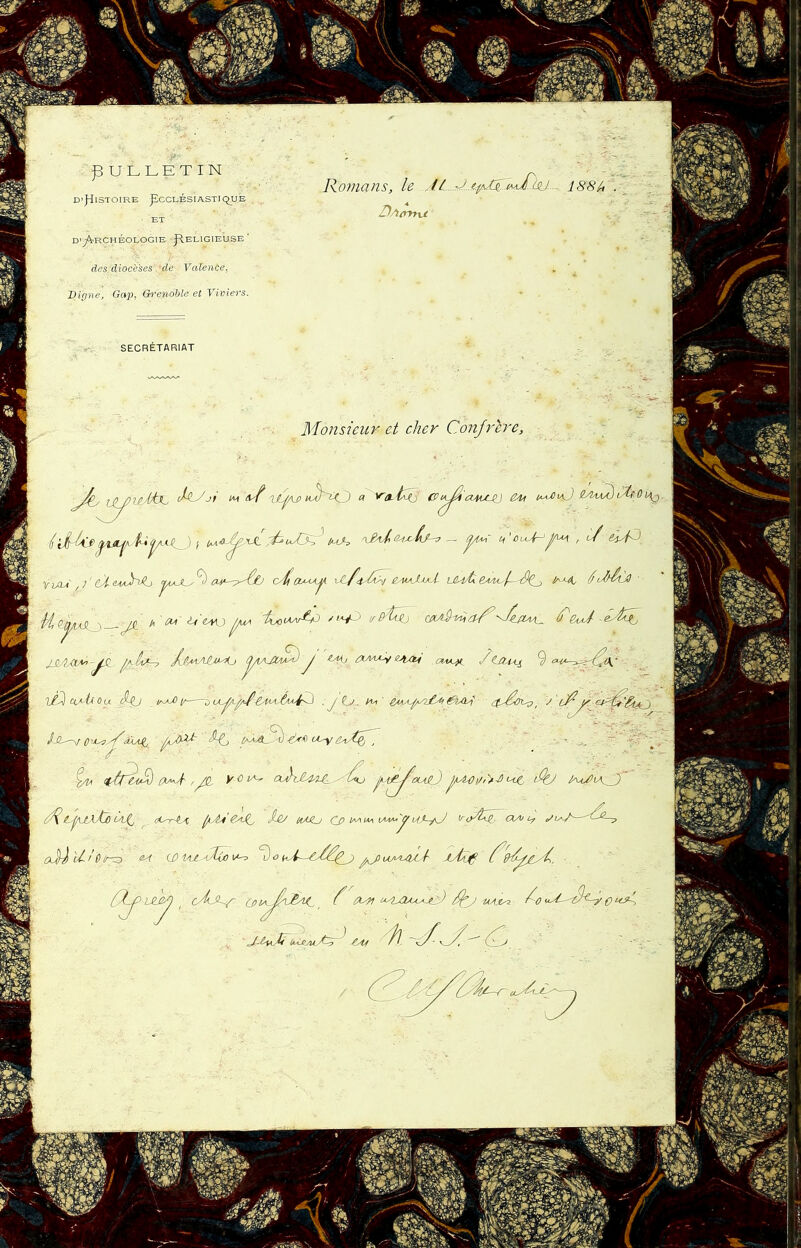 BULLETIN
D'HISTOIRE ECCLÉSIASTIQUE
ET
D'ARCHÉOLOGIE RELIGIEUSE
des diocèses de Valence,
Digne, Gap, Grenoble et Viviers.
SECRÉTARIAT
Romans, le 11 Septembre 1884.
Drôme
Monsieur et cher Confrère,
Je regrette de si mal répondre à votre confiance en mon érudition
bibliographique ; malgré toutes mes recherches – qui n'ont pu, il est
vrai, s'étendre que dans le champ relativement restreint de ma biblio
thèque – je n'ai rien pu trouver sur votre cardinal Jean. Peut-être
serai-je plus heureux quand j'en arriverai aux Jeans dans la
rédaction de mon supplément : je m'empresserai alors, s'il y a lieu,
de vous faire part de ma découverte.
En attendant, je vous adresse la préface provisoire de mon
Répertoire, avec prière de me communiquer votre avis sur les
additions et corrections dont elle pourrait être l'objet.
Agréez, cher confrère, l'assurance de mes tout dévoués
sentiments en N. S. J.-C.
Chevalier